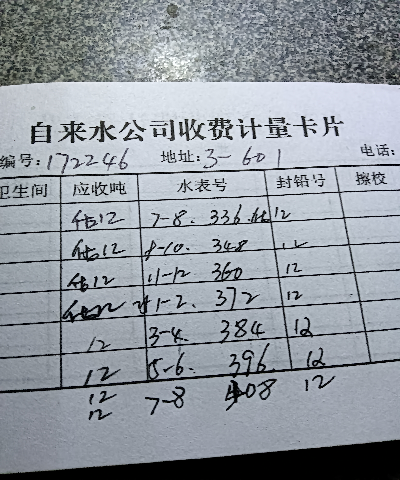 自来水公司收费计量卡片
编号:172246 地址:3-601 电话:
卫生间 应收吨 水表号 封铅号 擦校
估12 7-8. 336. 估12
估12 9-10. 348 12
估12 11-12 360 12
估12 1-2. 372 12
12 3-4. 384 12
12 5-6. 396. 12
12 7-8 408 12
12